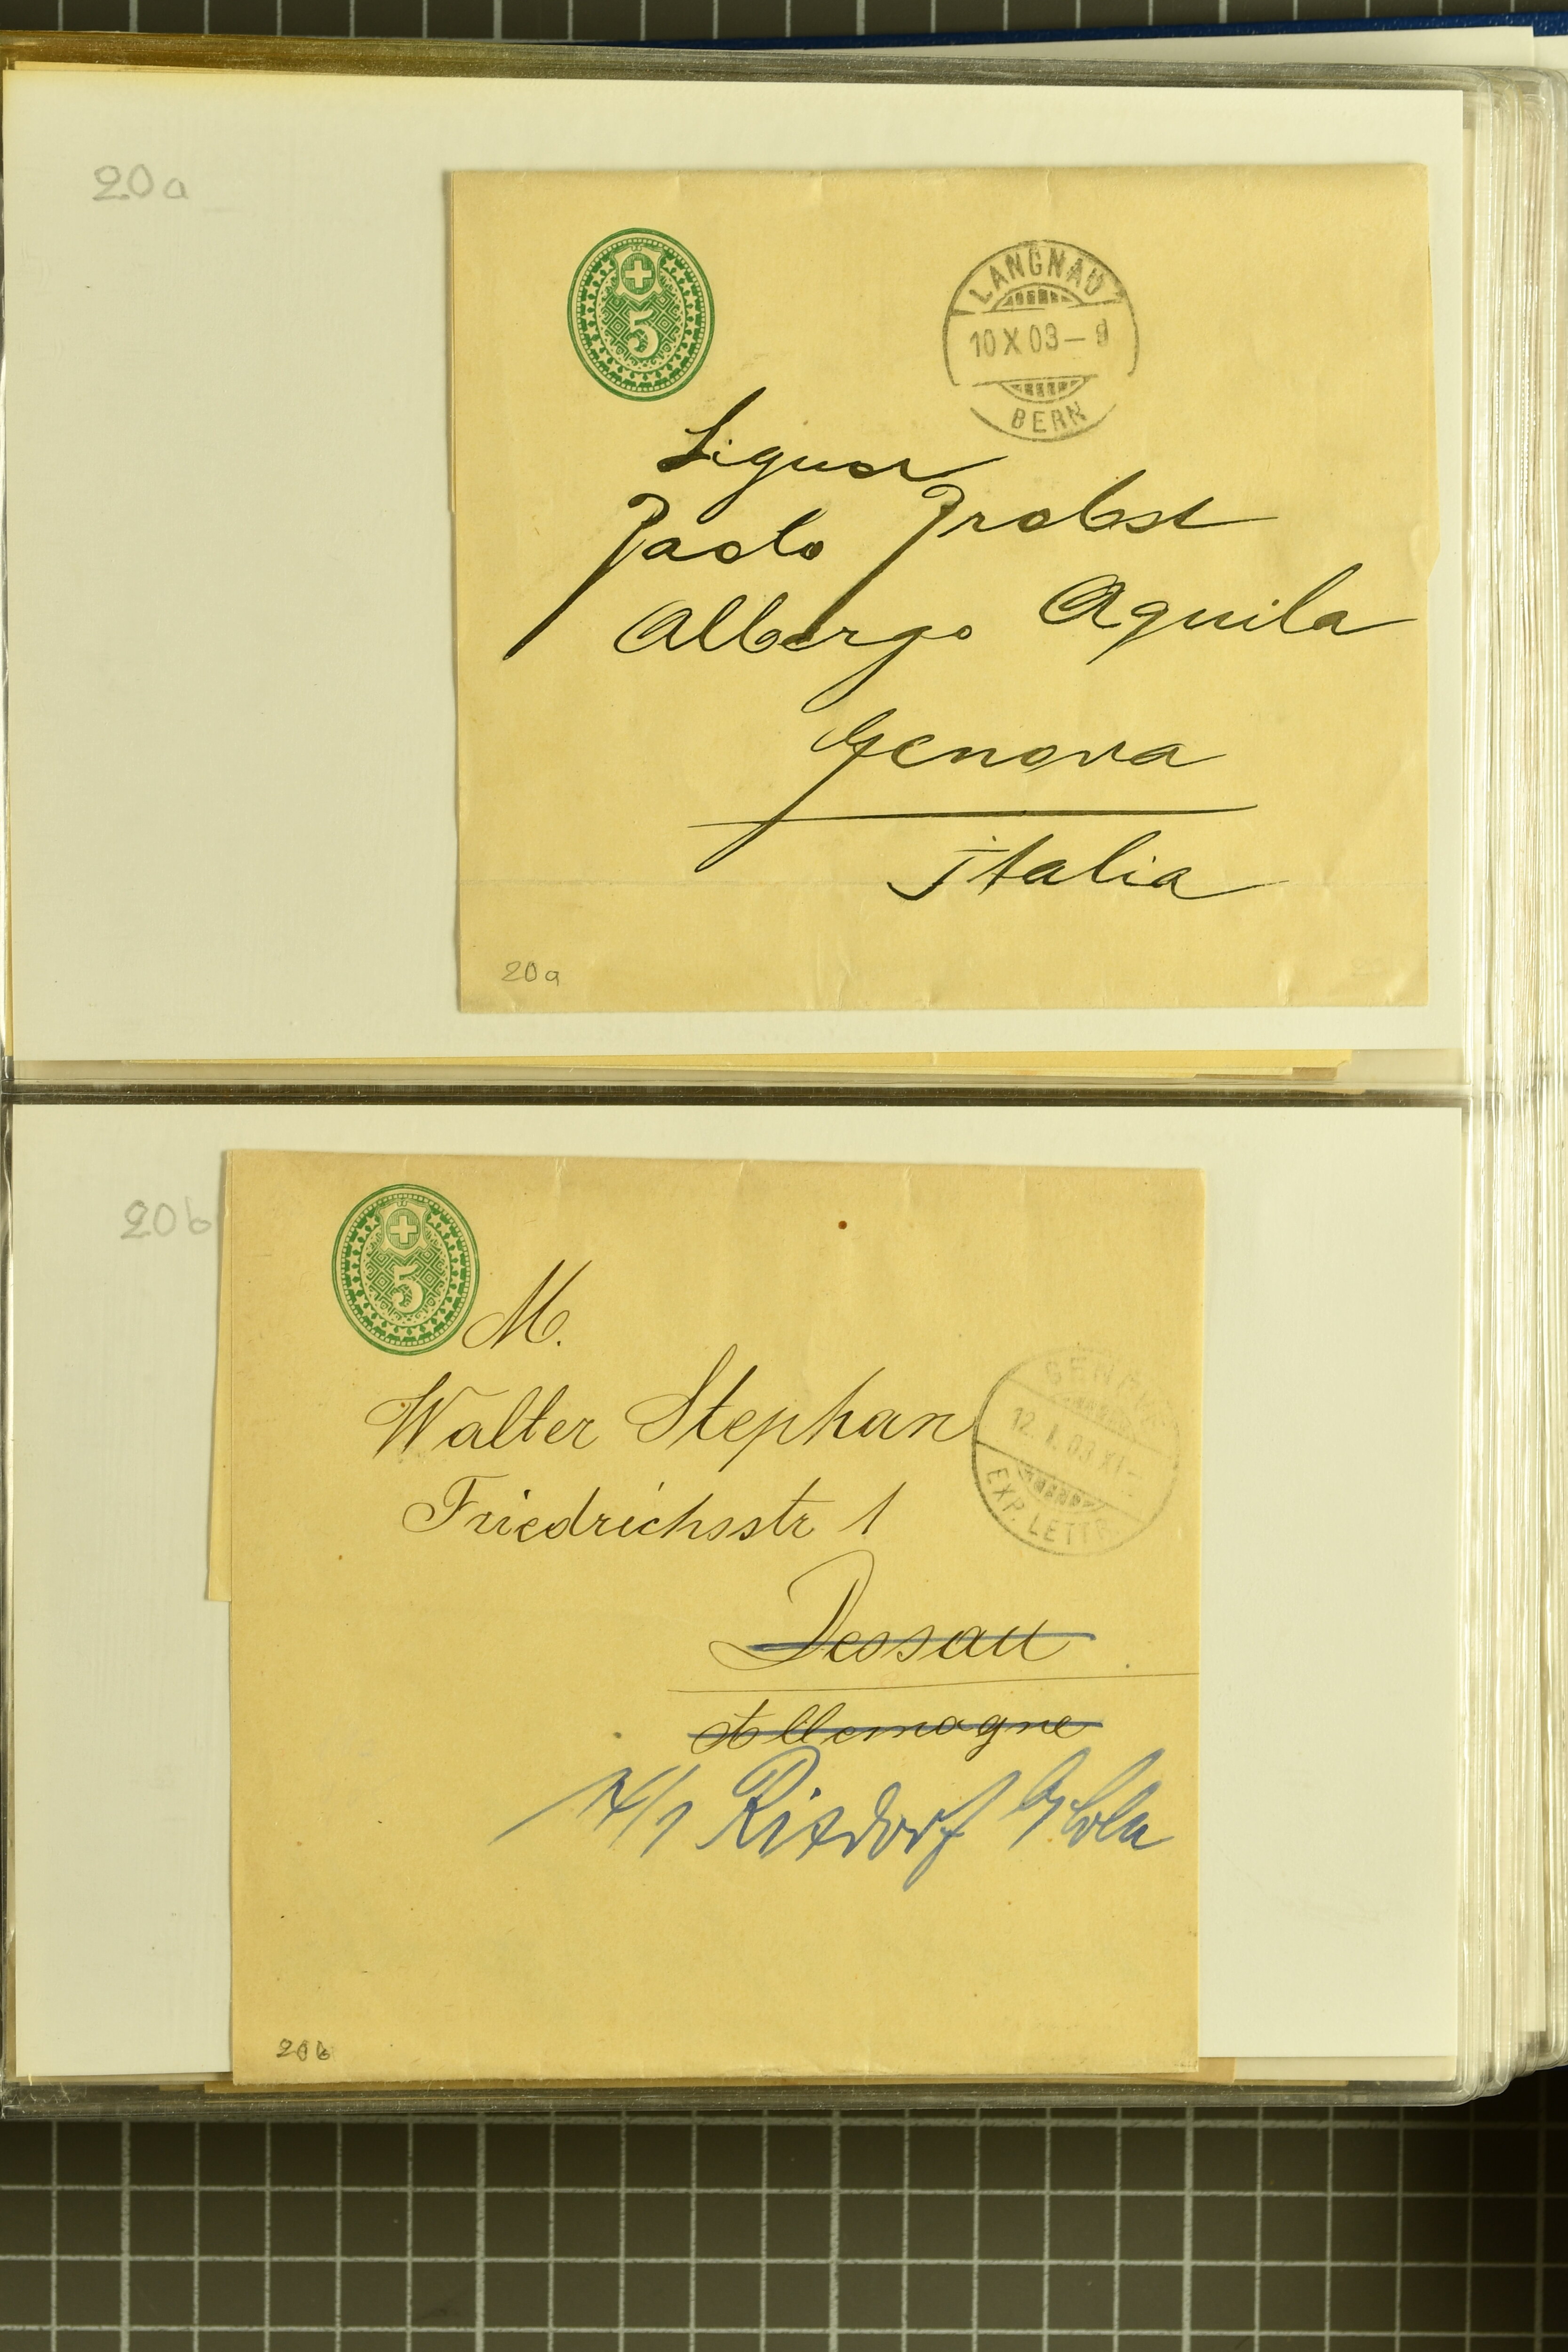 20a
5
LANGNAU
10 X 03 – 9
BERN
Signor
Paolo Probst
Albergo Aquila
Genova
Italia
20a
20b
5
M.
Walter Stephan
Friedrichsstr 1
GENÈVE
12. I. 03 XI –
EXP. LETTR.
Dessau
Allemagne
Rixdorf
20b